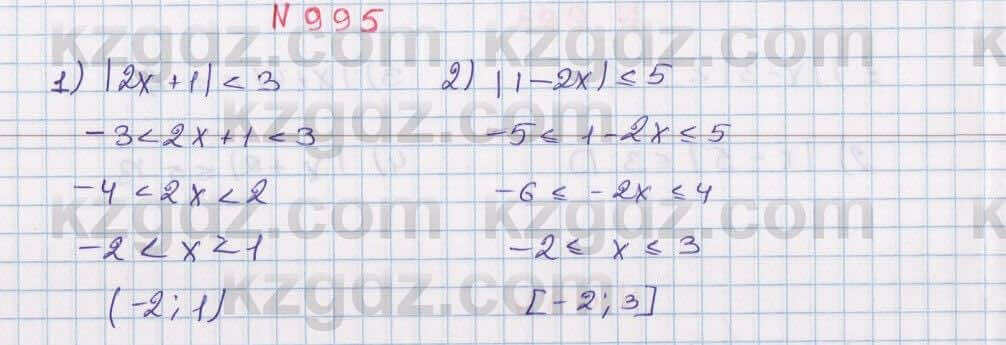 N 995
1) |2x+1| < 3
-3 < 2x+1 < 3
-4 < 2x < 2
-2 < x < 1
(-2; 1)
2) |1-2x| ≤ 5
-5 ≤ 1-2x ≤ 5
-6 ≤ -2x ≤ 4
-2 ≤ x ≤ 3
[-2; 3]
kzgdz.com
kzgdz.com
kzgdz.com
kzgdz.com
kzgdz.com
kzgdz.com
kzgdz.com
kzgdz.com